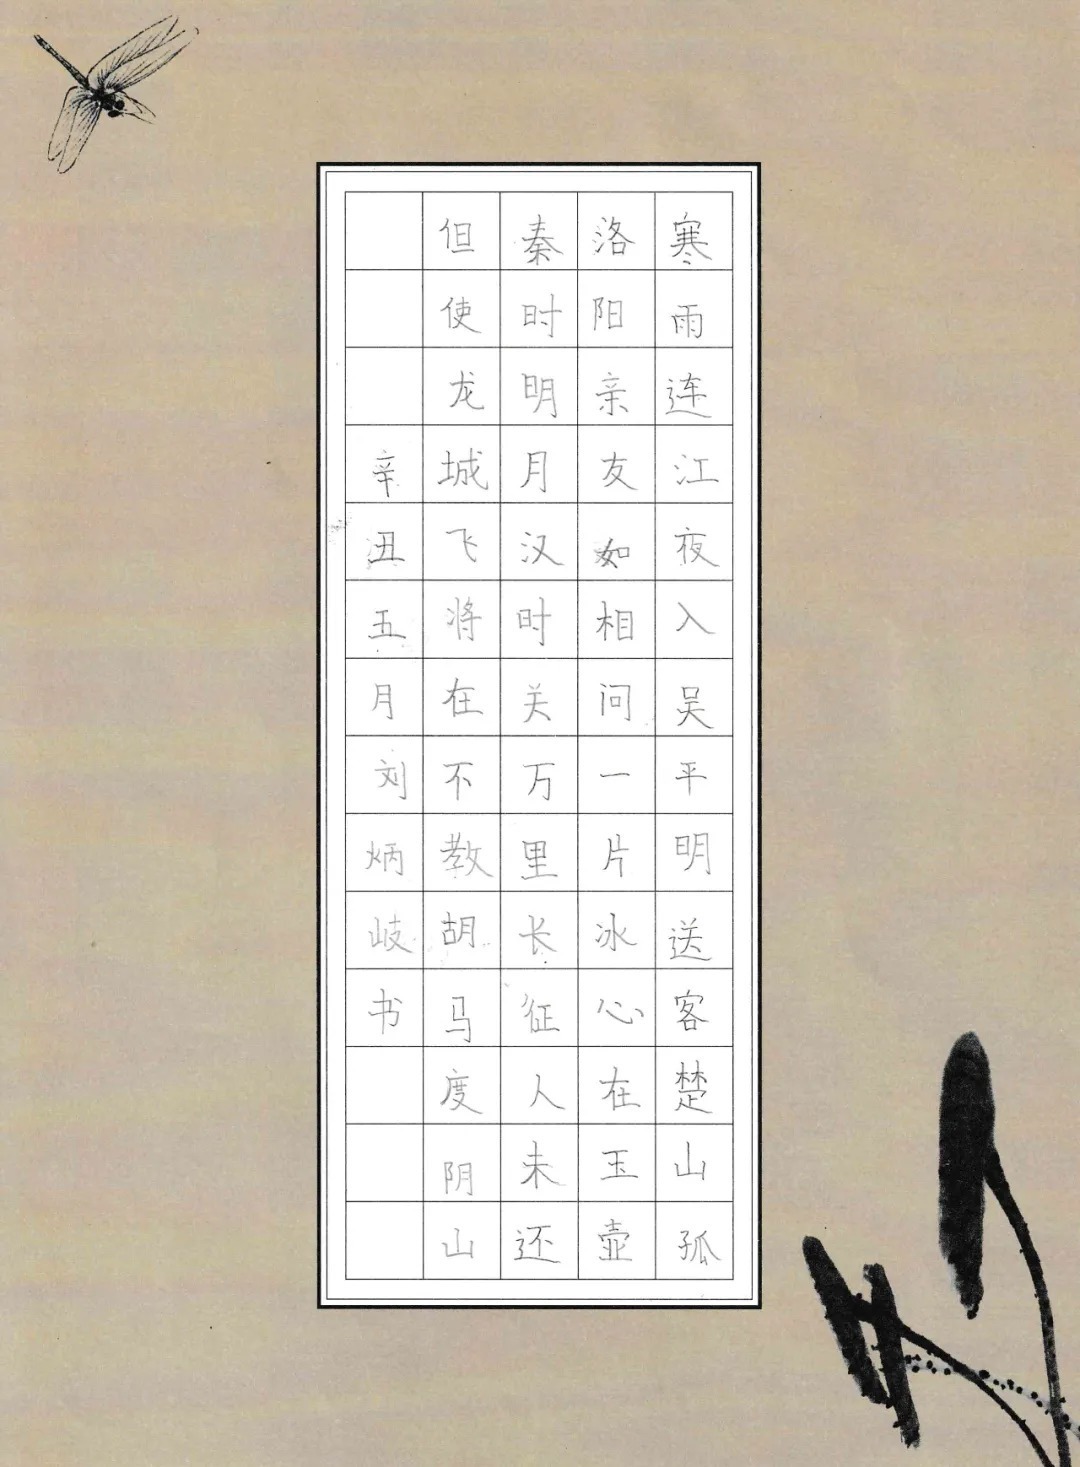 寒雨连江夜入吴平明送客楚山孤
洛阳亲友如相问一片冰心在玉壶
秦时明月汉时关万里长征人未还
但使龙城飞将在不教胡马度阴山
辛丑五月刘炳岐书